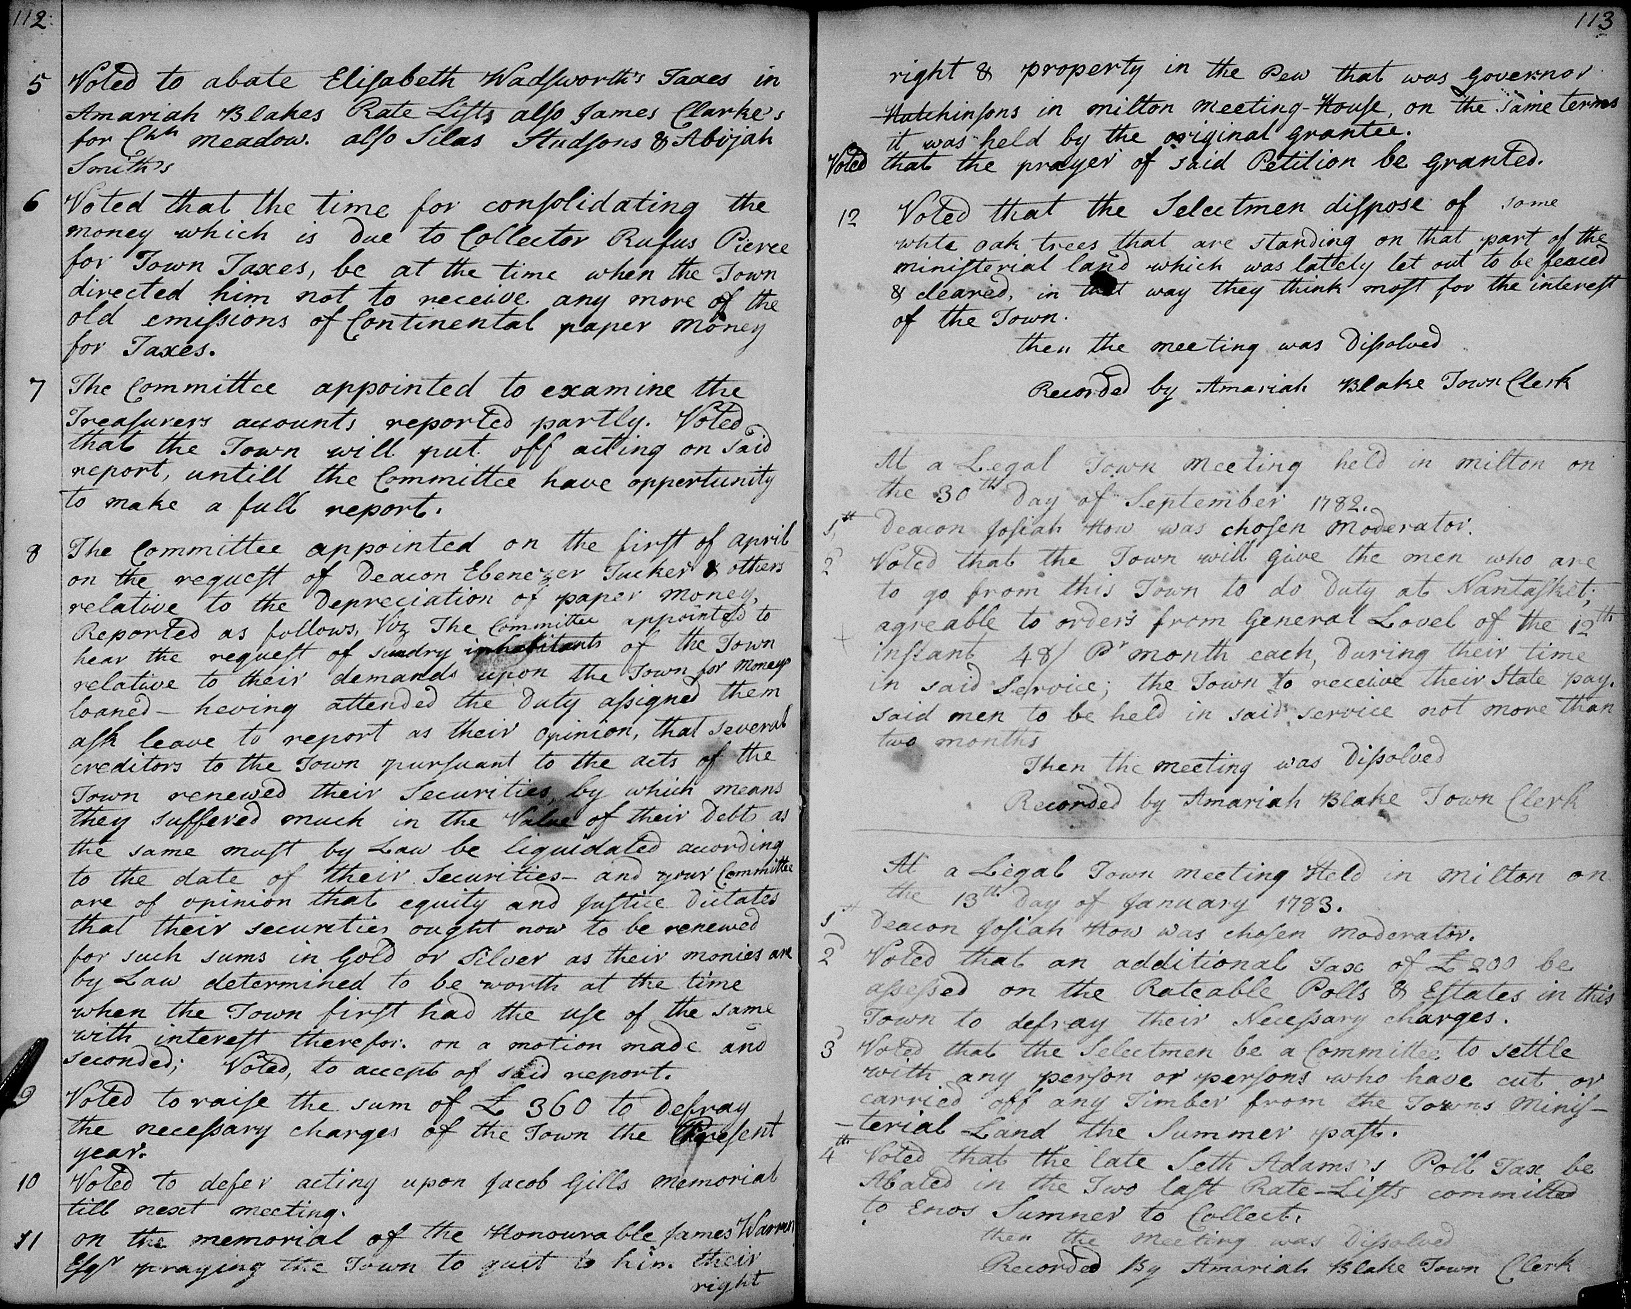 112
5 Voted to abate Elisabeth Wadsworth's Taxes in
Amariah Blakes Rate Lists also James Clarke's
for Chh meadow. also Silas Hudsons & Abijah
Smith's
6 Voted that the time for consolidating the
money which is Due to Collector Rufus Pierce
for Town Taxes, be at the time when the Town
directed him not to receive any more of the
old emissions of Continental paper money
for Taxes.
7 The Committee appointed to examine the
Treasurers accounts reported partly. Voted
that the Town will put off acting on said
report, untill the Committee have oppertunity
to make a full report.
8 The Committee appointed on the first of april
on the request of Deacon Ebenezer Tucker & others
relative to the Depreciation of paper money,
Reported as follows, Viz The Committee appointed to
hear the request of sundry inhabitants of the Town
relative to their demands upon the Town for Moneys
loaned – having attended the Duty assigned them
ask leave to report as their opinion, that several
creditors to the Town pursuant to the acts of the
Town renewed their Securities, by which means
they suffered much in the Value of their Debts as
the same must by Law be liquidated according
to the date of their Securities – and your Committee
are of opinion that equity and Justice dictates
that their securities ought now to be renewed
for such sums in Gold or Silver as their monies are
by Law determined to be worth at the time
when the Town first had the use of the same
with interest therefor. on a motion made and
seconded; Voted, to accept of said report.
9 Voted to raise the sum of £ 360 to Defray
the necessary charges of the Town the Present
year.
10 Voted to defer acting upon Jacob Gills memorial
till next meeting.
11 on the memorial of the Honourable James Warren
Esqr praying the Town to quit to him their
right
113
right & property in the Pew that was Governor
Hutchinsons in milton meeting-House, on the same terms
it was held by the original grantee.
Voted that the prayer of said Petition be granted.
12 Voted that the Selectmen dispose of some
white oak trees that are standing on that part of the
ministerial land which was lattely let out to be fenced
& cleared, in that way they think most for the interest
of the Town.
then the meeting was Dissolved
Recorded by Amariah Blake Town Clerk
At a Legal Town meeting held in milton on
the 30th Day of September 1782.
1st Deacon Josiah How was chosen Moderator.
2 Voted that the Town will give the men who are
to go from this Town to do Duty at Nantasket;
agreable to orders from General Lovel of the 12th
instant 48/ Pr month each, During their time
in said Service; the Town to receive their State pay.
said men to be held in said service not more than
two months
Then the meeting was Dissolved
Recorded by Amariah Blake Town Clerk
At a Legal Town meeting Held in milton on
the 13th Day of January 1783.
1st Deacon Josiah How was chosen moderator.
2 Voted that an additional Tax of £ 200 be
assessed on the Rateable Polls & Estates in this
Town to defray their Necessary charges.
3 Voted that the Selectmen be a Committee to settle
with any person or persons who have cut or
carried off any Timber from the Towns Minis-
-terial Land the Summer past.
4th Voted that the late Seth Adams's Poll Tax be
Abated in the Two last Rate-Lists committed
to Enos Sumner to Collect.
then the meeting was Dissolved
Recorded By Amariah Blake Town Clerk